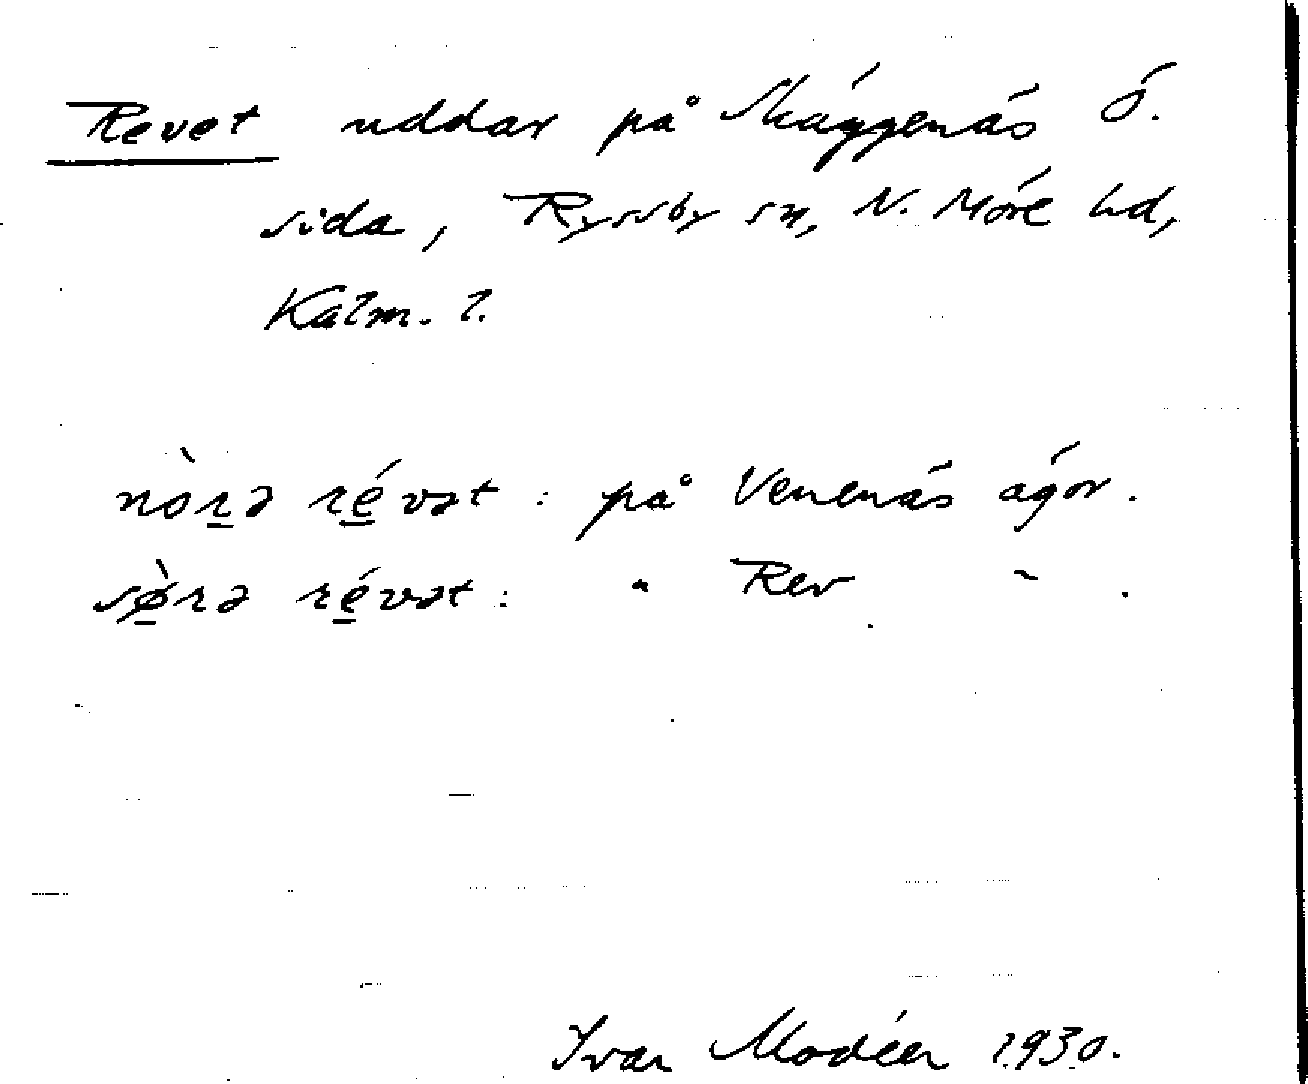 Revet uddar på Skäggenäs Ö.
sida, Ryssby sn, N. Möre hd,
Kalm. l.
nòr̲ə ré̲vət : på Venenäs ägor.
sø̲̀rə ré̲vət : " Rev " .
Ivar Modéer 1930.